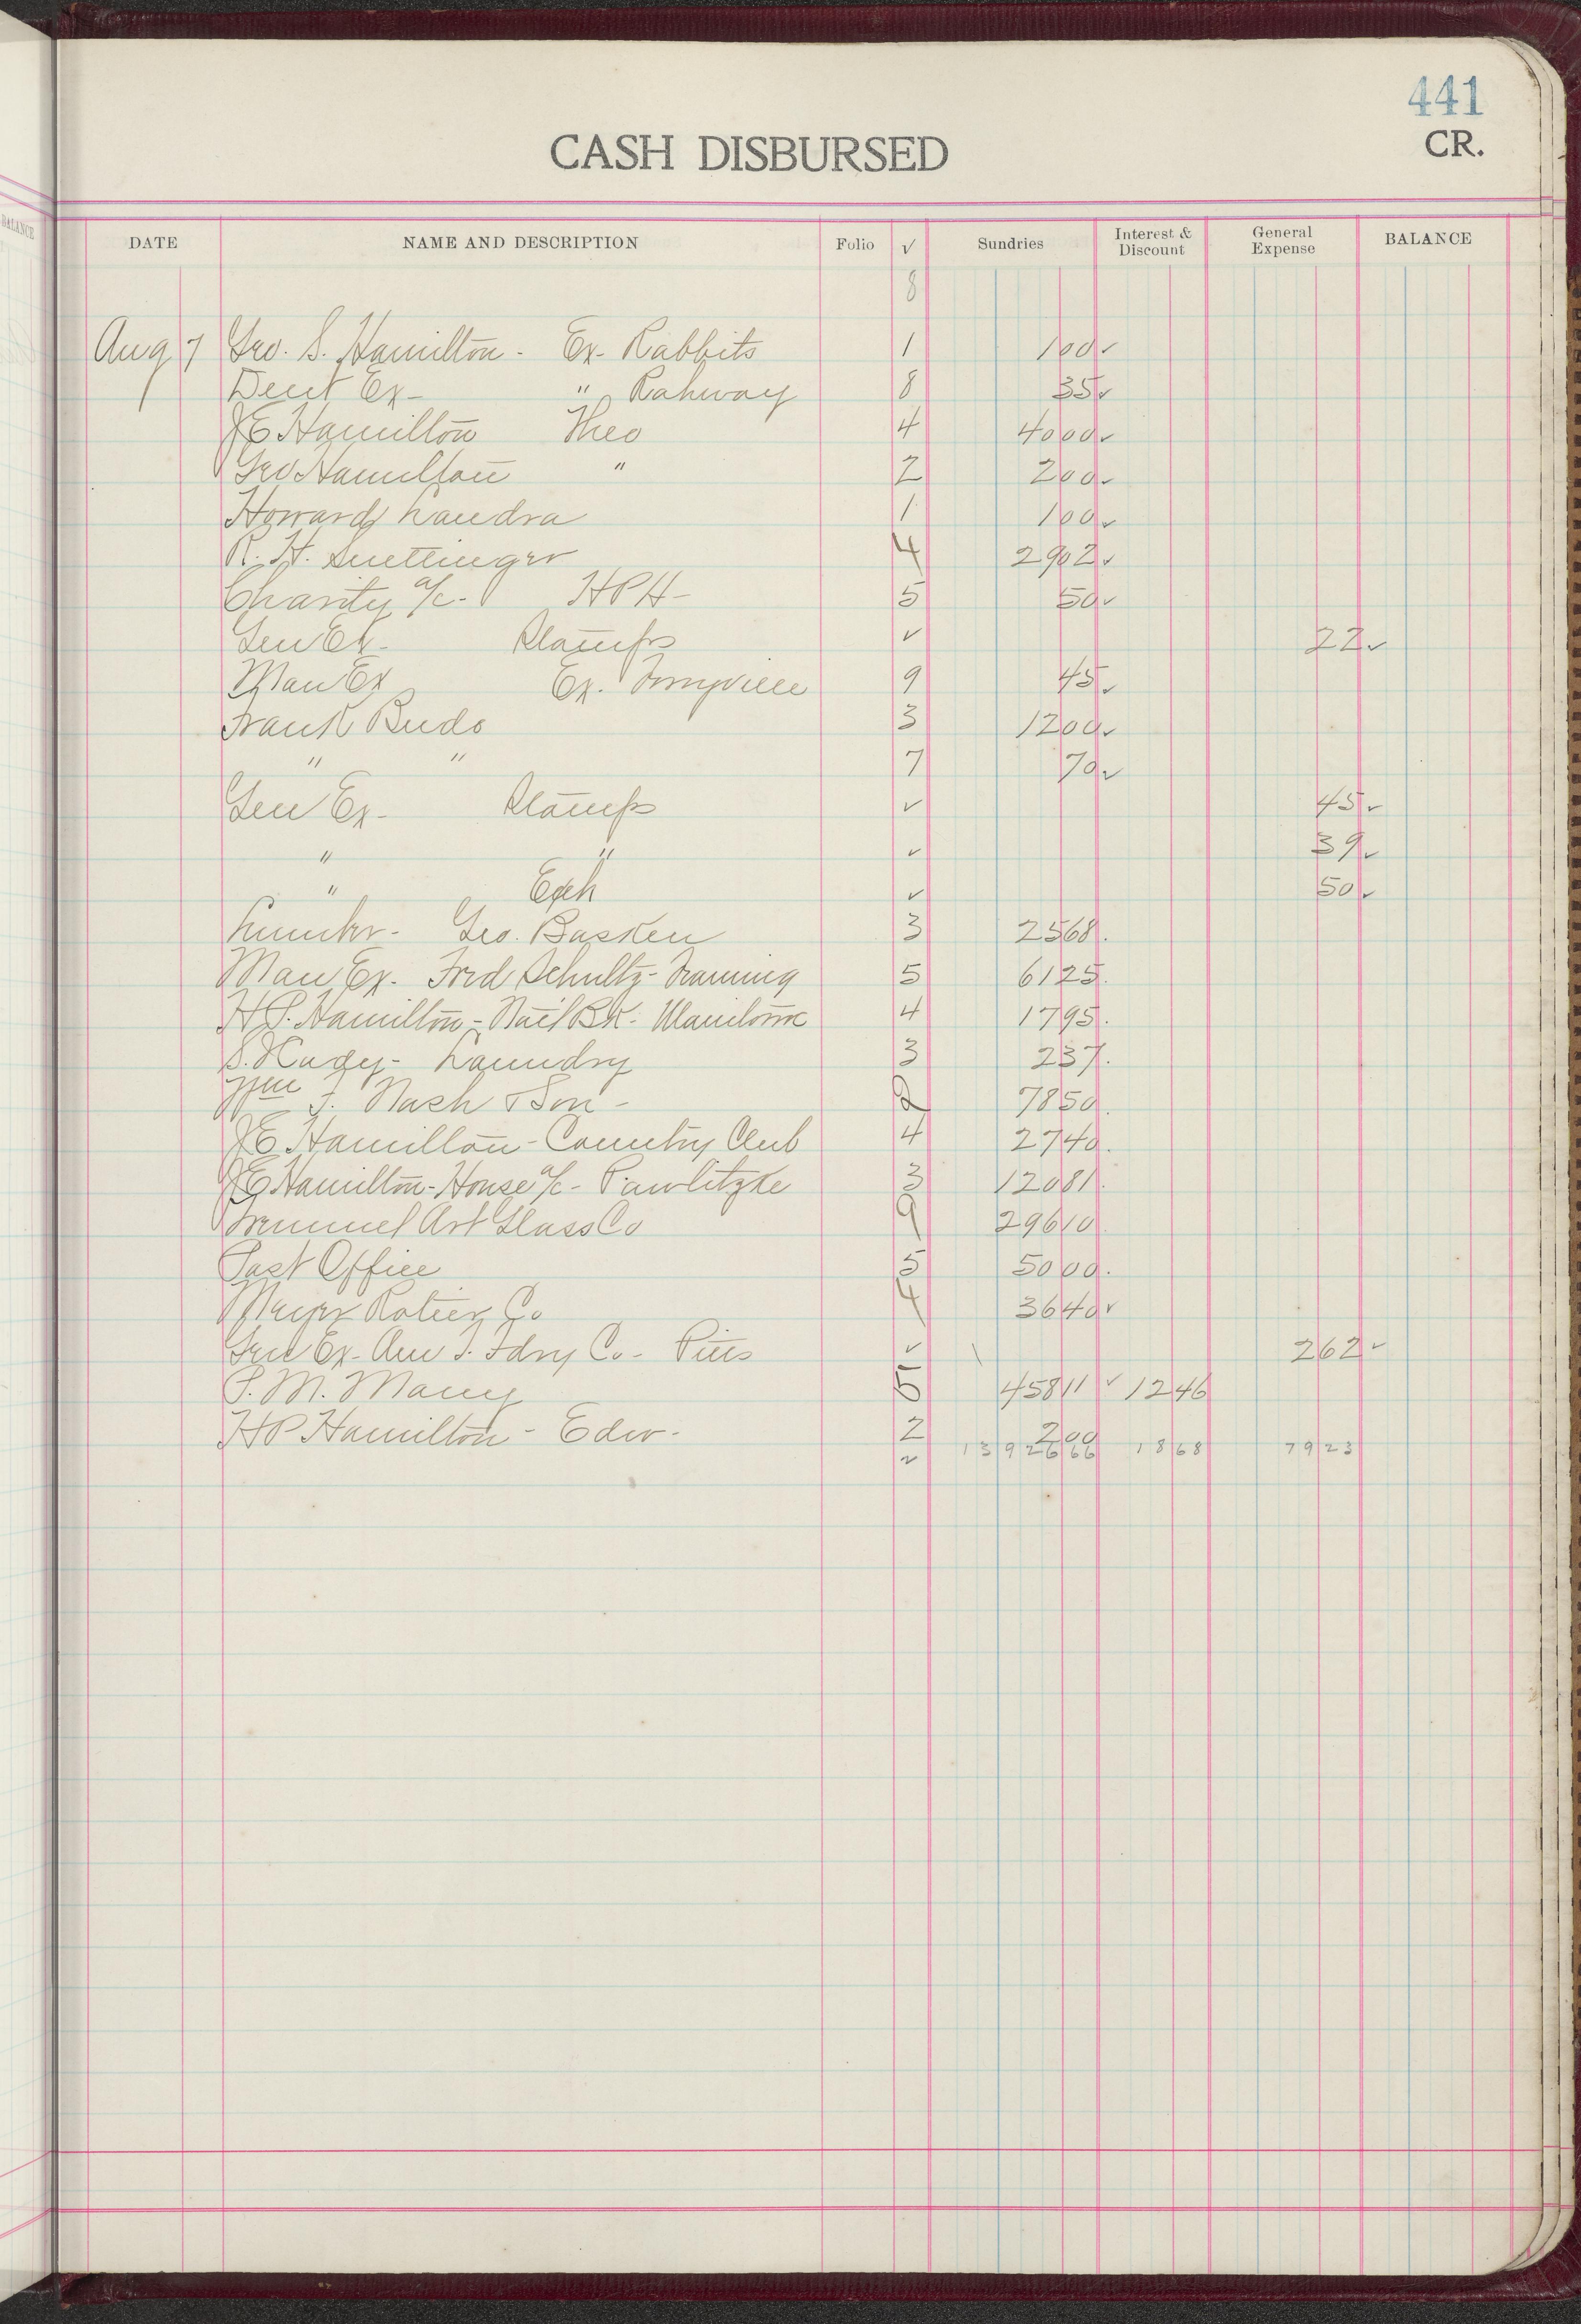 441
CASH DISBURSED CR.
DATE NAME AND DESCRIPTION Folio √ Sundries Interest & Discount General Expense BALANCE
BALANCE
8
Aug 7 Geo. S. Hamilton - Ex- Rabbits 1 1 00 ✓
Dent Ex - " Rahway 8 35 ✓
JE Hamilton Theo 4 40 00 ✓
Geo Hamilton " 2 2 00 ✓
Howard Landra 1 1 00 ✓
R. H. Suettinger 4 29 02 ✓
Charity a/c - HPH - 5 50 ✓
Gen Ex - Stamps ✓ 22 ✓
Man Ex Ex. 9 45 ✓
Frank Budo 3 12 00 ✓
" " 7 70 ✓
Gen Ex - Stamps ✓ 45 ✓
" " ✓ 39 ✓
" Exch ✓ 50 ✓
Lumber - Geo. Basken 3 25 68
Man Ex. Fred Schultz - 5 61 25
H.P. Hamilton - Nat'l BK - 4 17 95
S. - Laundry 3 2 37
Wm F. Nash & Son - 2 78 50
JE Hamilton - Country Club 4 27 40
JE Hamilton - House a/c - Pawlitzke 3 120 81
Art Glass Co 9 296 10
Post Office 5 50 00
Meyer Rotier Co 4 36 40 ✓
Gen Ex - Am T. Fdry Co - ✓ 2 62 ✓
S. M. 51 458 11 ✓ 12 46
HP Hamilton - Edw - 2 2 00
✓ 13926 66 18 68 79 23